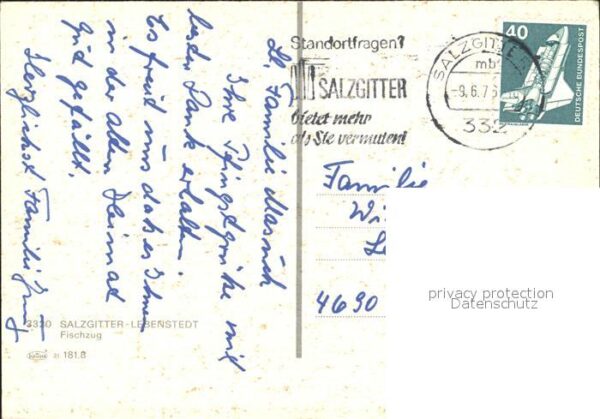 Lb. Familie Masuch
Ihre Pfingstgrüße mit
lieben Dank erhalten
Es freut uns daß es Ihnen
in der alten Heimat
gut gefällt.
Herzlichst Familie
3320 SALZGITTER-LEBENSTEDT
Fischzug
21 181.8
Standortfragen?
SALZGITTER
bietet mehr
als Sie vermuten!
SALZGITTER
mb
-9.6.76
332
40
DEUTSCHE BUNDESPOST
Familie
4690
privacy protection
Datenschutz